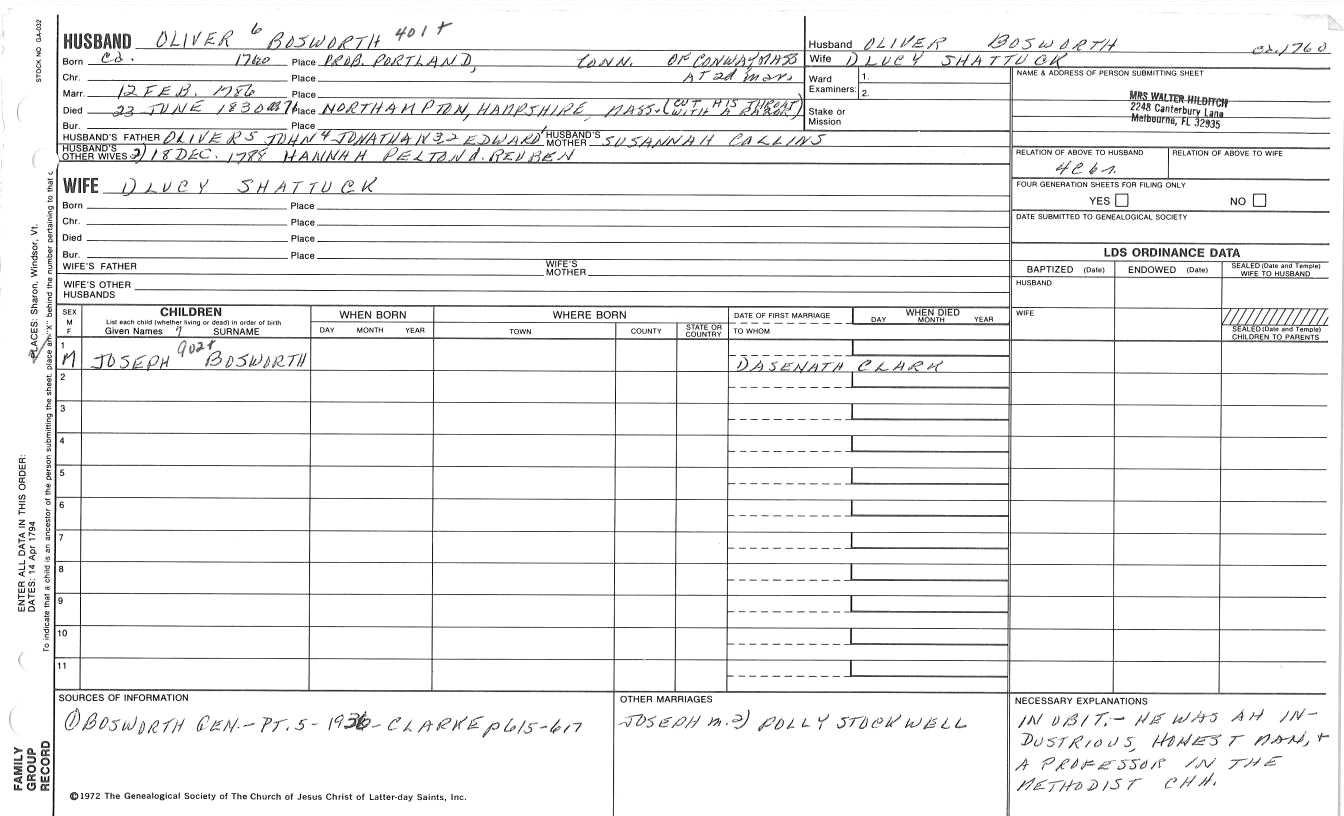 HUSBAND OLIVER 6 BOSWORTH 401+
Born ca. 1760 Place PROB. PORTLAND, CONN. OF CONWAY MASS
Chr. Place AT 2d mar.
Marr. 12 FEB. 1786 Place
Died 23 JUNE 1830 ae 71 Place NORTHAMPTON, HAMPSHIRE, MASS. (CUT HIS THROAT WITH A RAZOR)
Bur. Place
HUSBAND'S FATHER OLIVER 5 JOHN 4 JONATHAN 3,2 EDWARD 1 HUSBAND'S MOTHER SUSANNAH COLLINS
HUSBAND'S OTHER WIVES 2) 18 DEC. 1788 HANNAH PELTON d. REUBEN
WIFE 1) LUCY SHATTUCK
Born Place
Chr. Place
Died Place
Bur. Place
WIFE'S FATHER WIFE'S MOTHER
WIFE'S OTHER HUSBANDS
Husband OLIVER BOSWORTH ca. 1760
Wife 1) LUCY SHATTUCK
Ward Examiners: 1. 2.
Stake or Mission
NAME & ADDRESS OF PERSON SUBMITTING SHEET
MRS WALTER HILDITCH
2248 Canterbury Lane
Melbourne, FL 32935
RELATION OF ABOVE TO HUSBAND RELATION OF ABOVE TO WIFE
FOUR GENERATION SHEETS FOR FILING ONLY
YES NO
DATE SUBMITTED TO GENEALOGICAL SOCIETY
LDS ORDINANCE DATA
BAPTIZED (Date) ENDOWED (Date) SEALED (Date and Temple) WIFE TO HUSBAND
HUSBAND
WIFE
SEALED (Date and Temple) CHILDREN TO PARENTS
SEX M F
CHILDREN
List each child (whether living or dead) in order of birth
Given Names SURNAME
WHEN BORN
DAY MONTH YEAR
WHERE BORN
TOWN COUNTY STATE OR COUNTRY
DATE OF FIRST MARRIAGE
TO WHOM
WHEN DIED
DAY MONTH YEAR
1 M JOSEPH 7 902+ BOSWORTH 1) ASENATH CLARK
2
3
4
5
6
7
8
9
10
11
SOURCES OF INFORMATION
① BOSWORTH GEN.- PT. 5 - 1936 - CLARKE p 615-617
©1972 The Genealogical Society of The Church of Jesus Christ of Latter-day Saints, Inc.
OTHER MARRIAGES
JOSEPH m. 2) POLLY STOCKWELL
NECESSARY EXPLANATIONS
IN OBIT.- HE WAS AN IN-
DUSTRIOUS, HONEST MAN, +
A PROFESSOR IN THE
METHODIST CHH.
STOCK NO GA-032
PLACES: Sharon, Windsor, Vt.
ENTER ALL DATA IN THIS ORDER:
DATES: 14 Apr 1794
To indicate that a child is an ancestor of the person submitting the sheet, place an "X" behind the number pertaining to that c
FAMILY
GROUP
RECORD